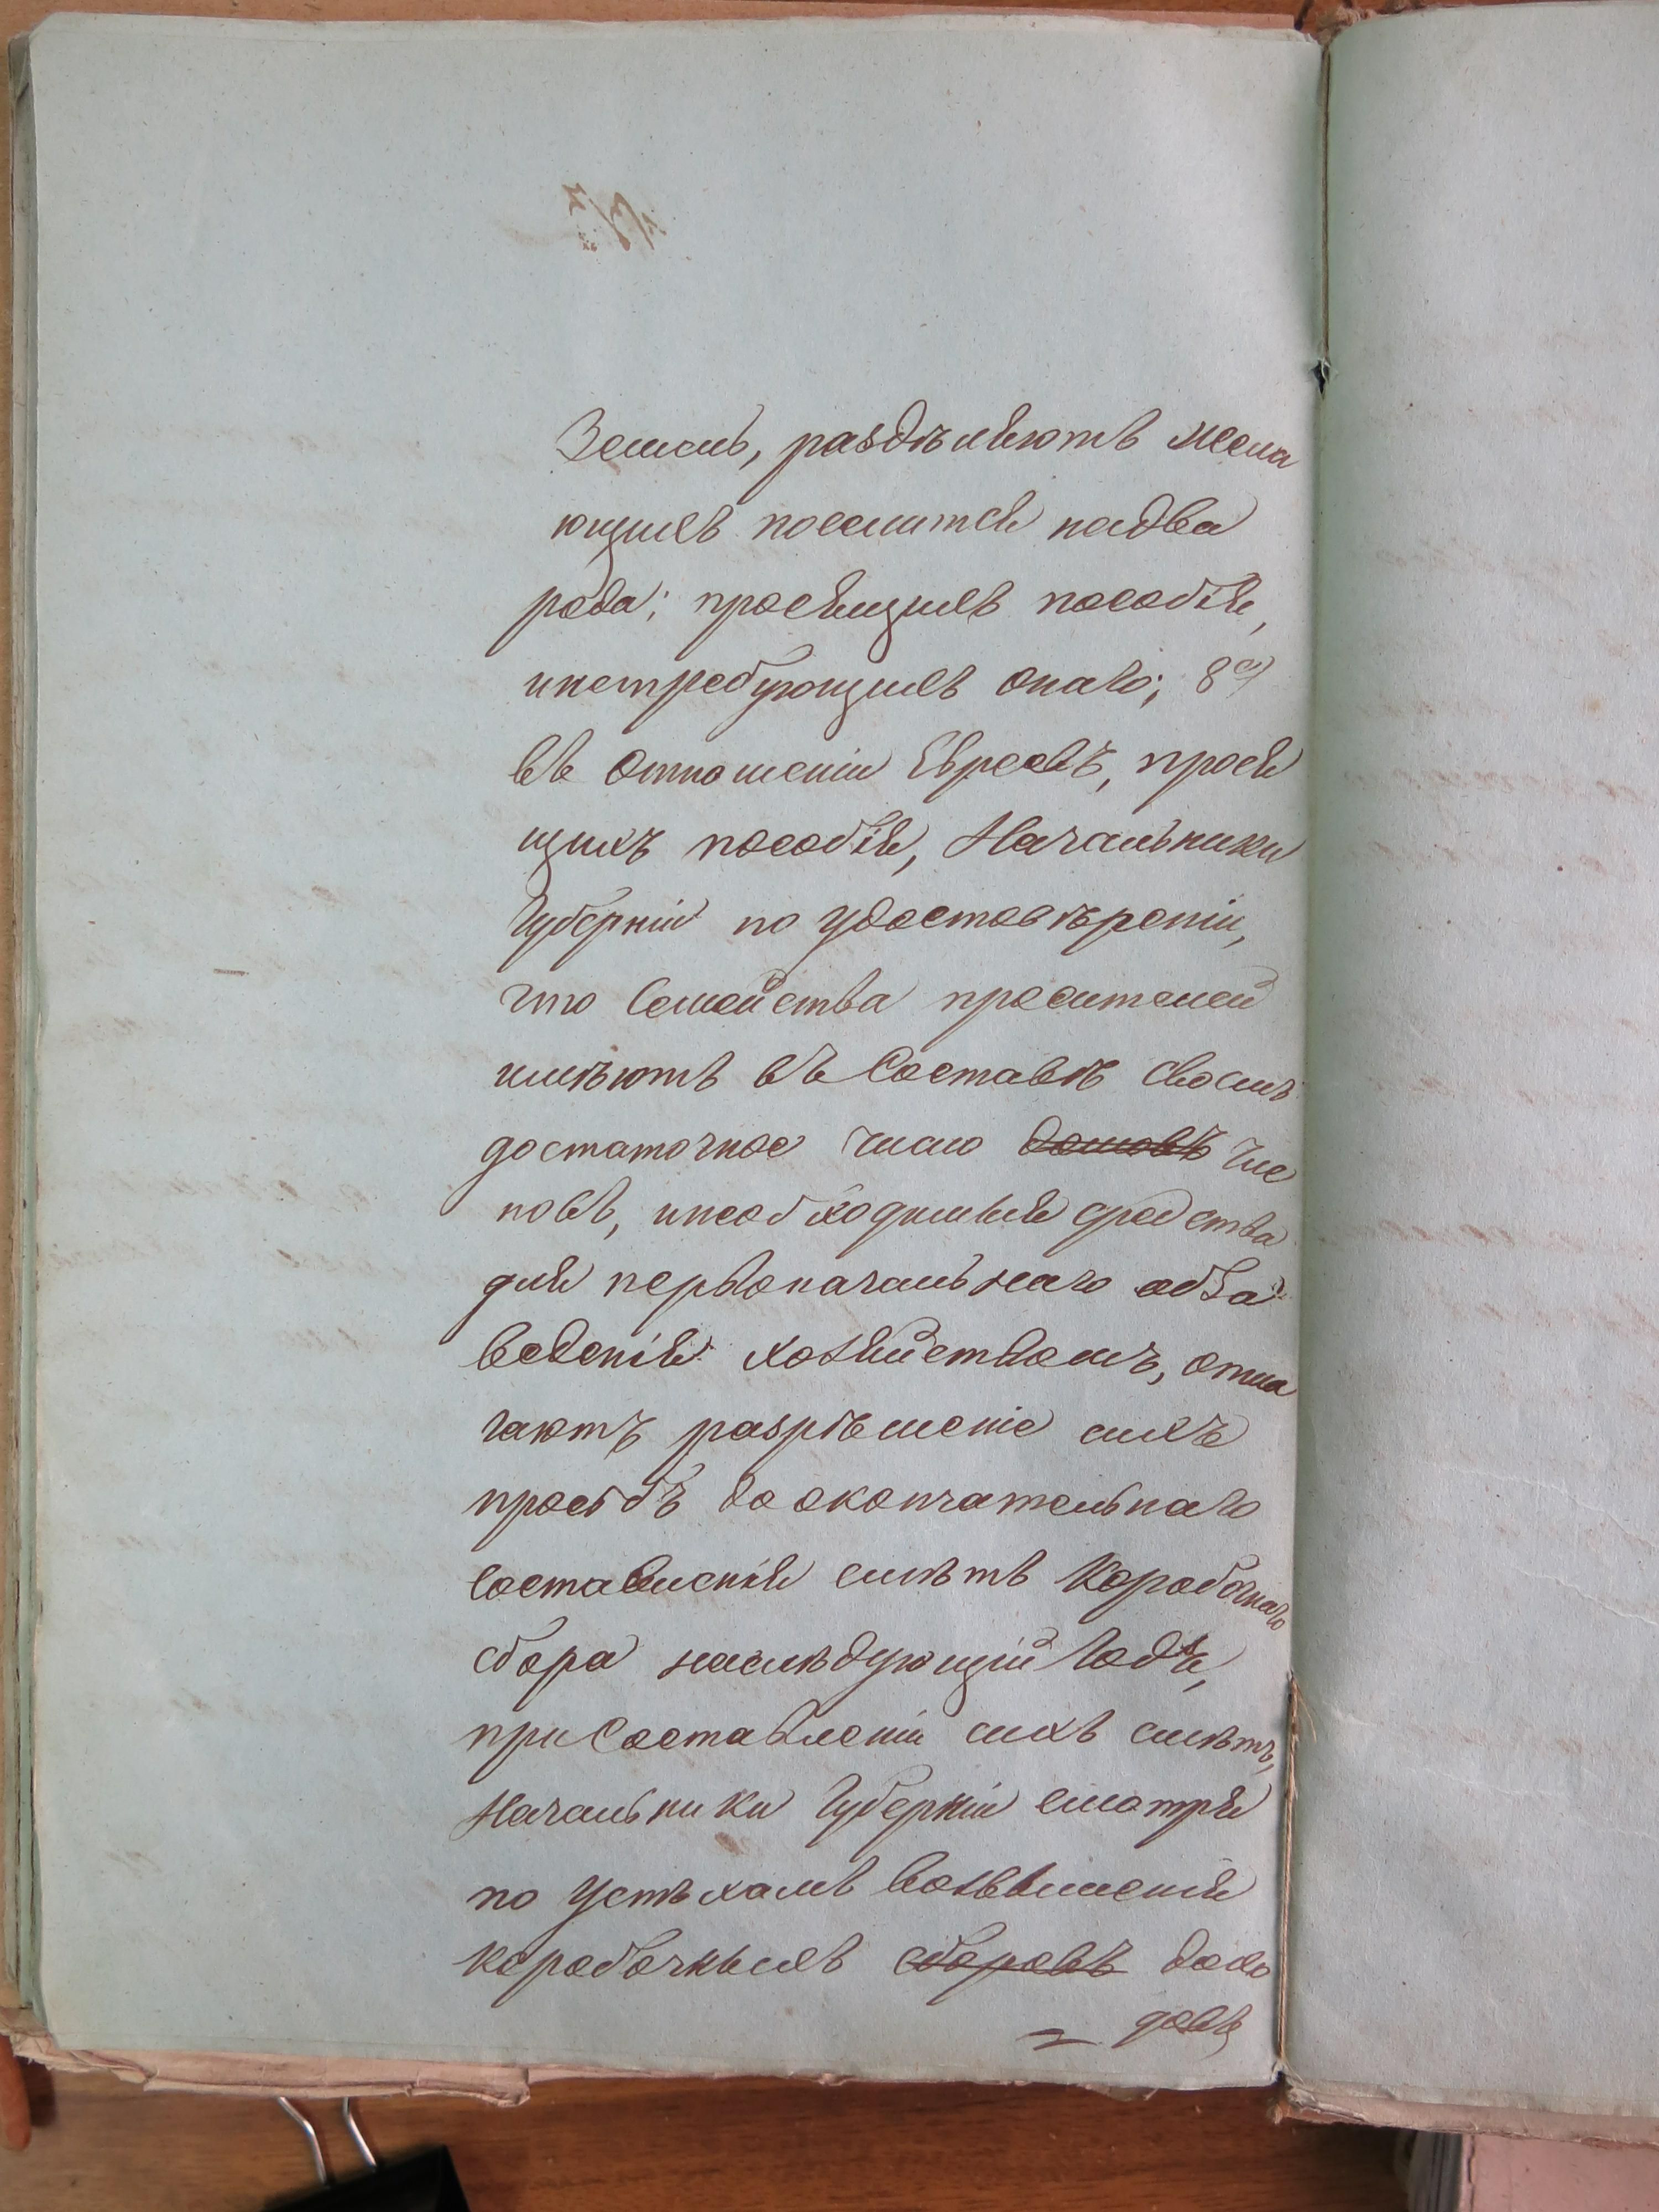 Земель, раздѣляютъ жела
ющихъ поселится надва
рода; просящихъ пособія,
инетребующихъ онаго; 8е)
въ отношеніи Евреевъ, прося
щихъ пособія, Начальники
Губерній по удостовѣреніи,
что Семейства просителей
имѣютъ въ Составѣ своемъ
достаточное число домовъ чле
новъ, инеобходимыя средства
для первоначальнаго обза
веденія хозяйствомъ, отла
гаютъ разрѣшеніе сихъ
просьбъ доокончательнаго
составленія смѣтъ Коробочнаго
сбора наслѣдующій Годъ,
при Составленіи сихъ смѣтъ,
Начальники Губерній смотря
по Успѣхамъ возвышенія
коробочныхъ сборовъ дохо
довъ,